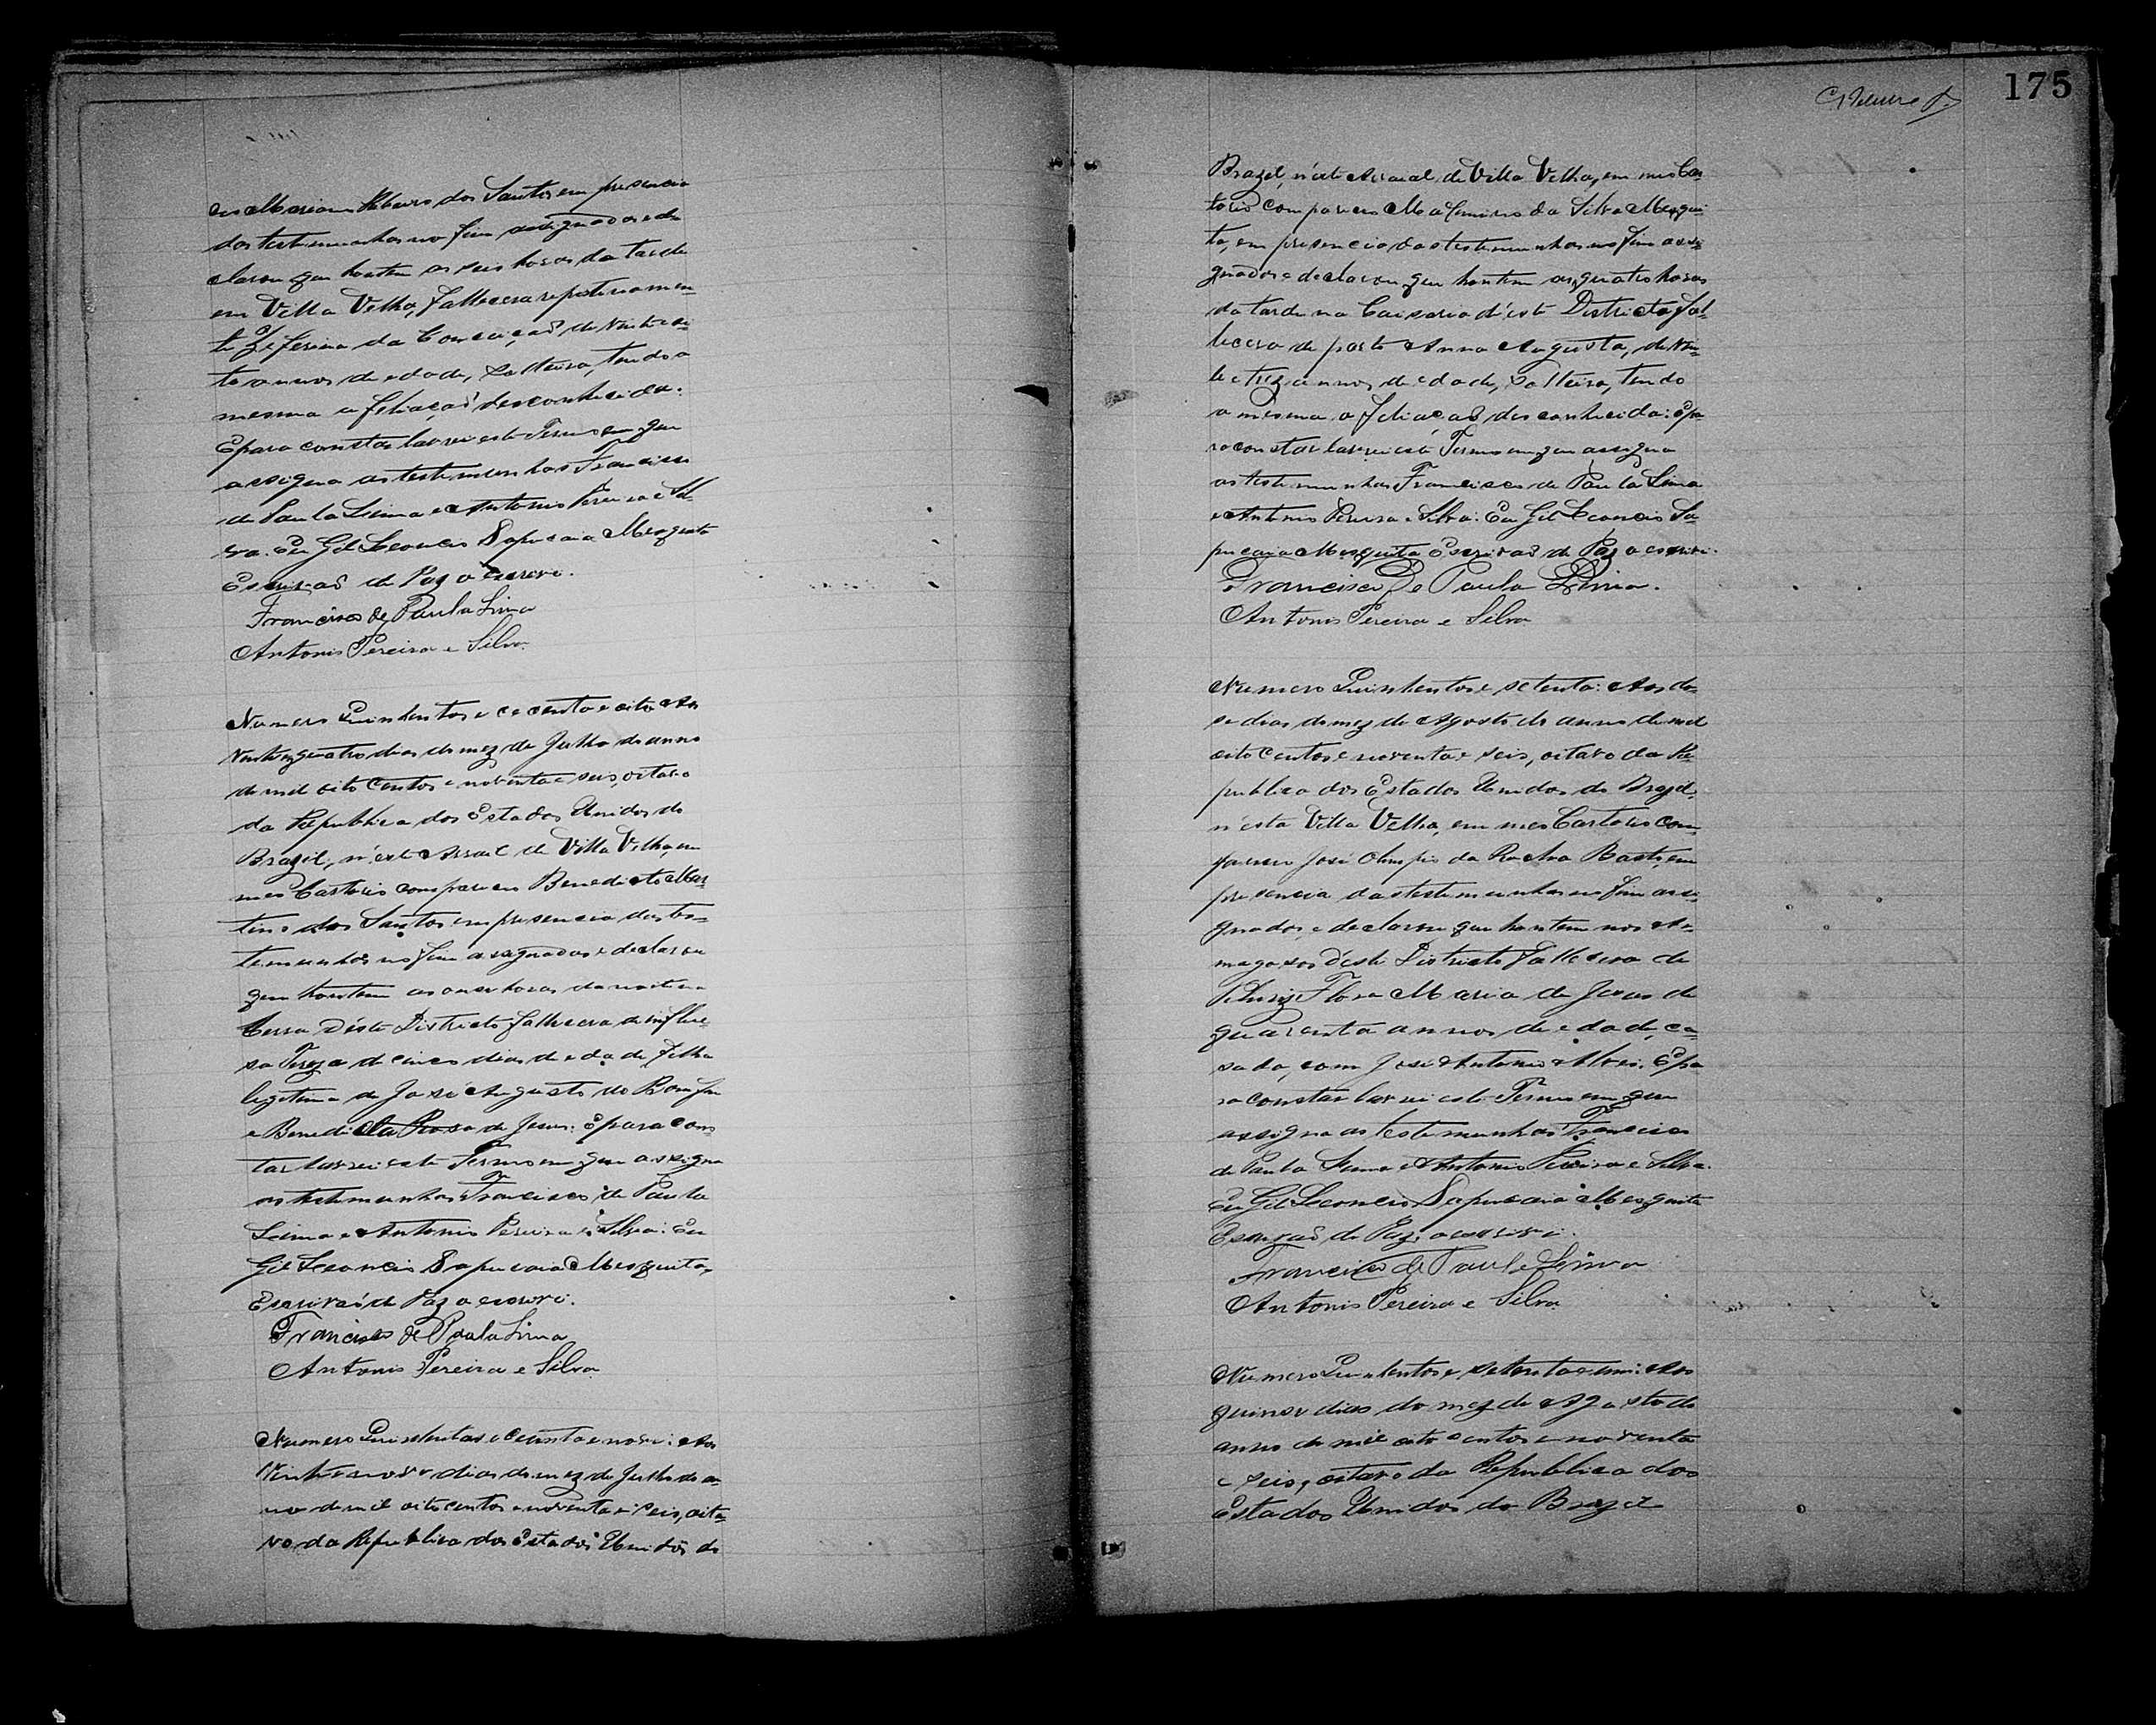 ceo Mariano Ribeiro dos Santos em presencia
das testemunhas no fim assignados e de
clarou que hontem as seis horas da tarde
em Villa Velha, fallecera repentinamen
te Zeferina da Conceição de vinte e se
te annos de edade, solteira, tendo a
mesma a filiação desconhecida.
E para constar lavrei este Termo em que
assigna as testemunhas Francisco
de Paula Lima e Antonio Pereira e Sil
va. Eu Gil Leoncio Sapucaia Mesquita
Escrivaõ de Paz o escrevi.
Francisco de Paula Lima
Antonio Pereira e Silva
Numero Quinhentos e cecenta e oito Aos
Vinte quatro dias do mez de Julho do anno
de mil oito centos e noventa e seis, oitavo
da Republica dos Estados Unidos do
Brazil, n'este Arraial de Villa Velha, em
meo Cartorio compareceo Benedicto Mar
tins dos Santos em presencia das tes
temunhas no fim assignados e declarou
que hontem as onse horas da noite na
Serra d'este Districto fallecera de influe
sa Tereza de cinco dias de edade filha
legitima de José Augusto do Bomfim
e Benedicta Rosa de Jesus: E para cons
tar lavrei este Termo em que assigna
as testemunhas Francisco de Paula
Lima e Antonio Pereira e Silva: Eu
Gil Leoncio Sapucaia Mesquita,
Escrivaõ de Paz o escrevi.
Francisco de Paula Lima
Antonio Pereira e Silva
Numero Quinhentos e cecenta e nove: Aos
Vinte e nove dias do mez de Julho do an
no de mil oito centos e noventa e seis, oita
vo da Republica dos Estados Unidos do
175
Brazil, n'este Arraial de Villa Velha, em meo Car
torio compareceo Maximino da Silva Mesqui
ta, em presencia das testemunhas no fim assi
gnados e declarou que hontem as quatro horas
da tarde na Caisaria d'este Districto fal
lecera de parto Anna Augusta, de vin
te e trez annos de edade, solteira, tendo
a mesma a filiação desconhecida: E pa
ra constar lavrei este Termo em que assigna
as testemunhas Francisco de Paula Lima
e Antonio Pereira e Silva: Eu Gil Leoncio Sa
pucaia Mesquita, Escrivaõ de Paz o escrevi.
Francisco de Paula Lima.
Antonio Pereira e Silva
Numero Quinhentos e setenta: Aos do
se dias do mez de Agosto do anno de mil
oito centos e noventa e seis, oitavo da Re
publica dos Estados Unidos do Brazil,
n'esta Villa Velha, em meo Cartorio com
pareceo José Olimpio da Rocha Basto, em
presencia das testemunhas no fim assi
gnados, e declarou que hontem nos Ar
magosos d'este Districto fallecera de
Flora Maria de Jesus de
quarenta annos de edade, ca
sada, com José Antonio Alves. E pa
ra constar lavrei este Termo em que
assigna as testemunhas Francisco
de Paula Lima e Antonio Pereira e Silva.
Eu Gil Leoncio Sapucaia Mesquita
Escrivaõ de Paz o escrevi.
Francisco de Paula Lima
Antonio Pereira e Silva
Numero Quinhentos e setenta e um: Aos
quinse dias do mez de Agosto do
anno de mil oito centos e noventa
e seis, oitavo da Republica dos
Estados Unidos do Brazil